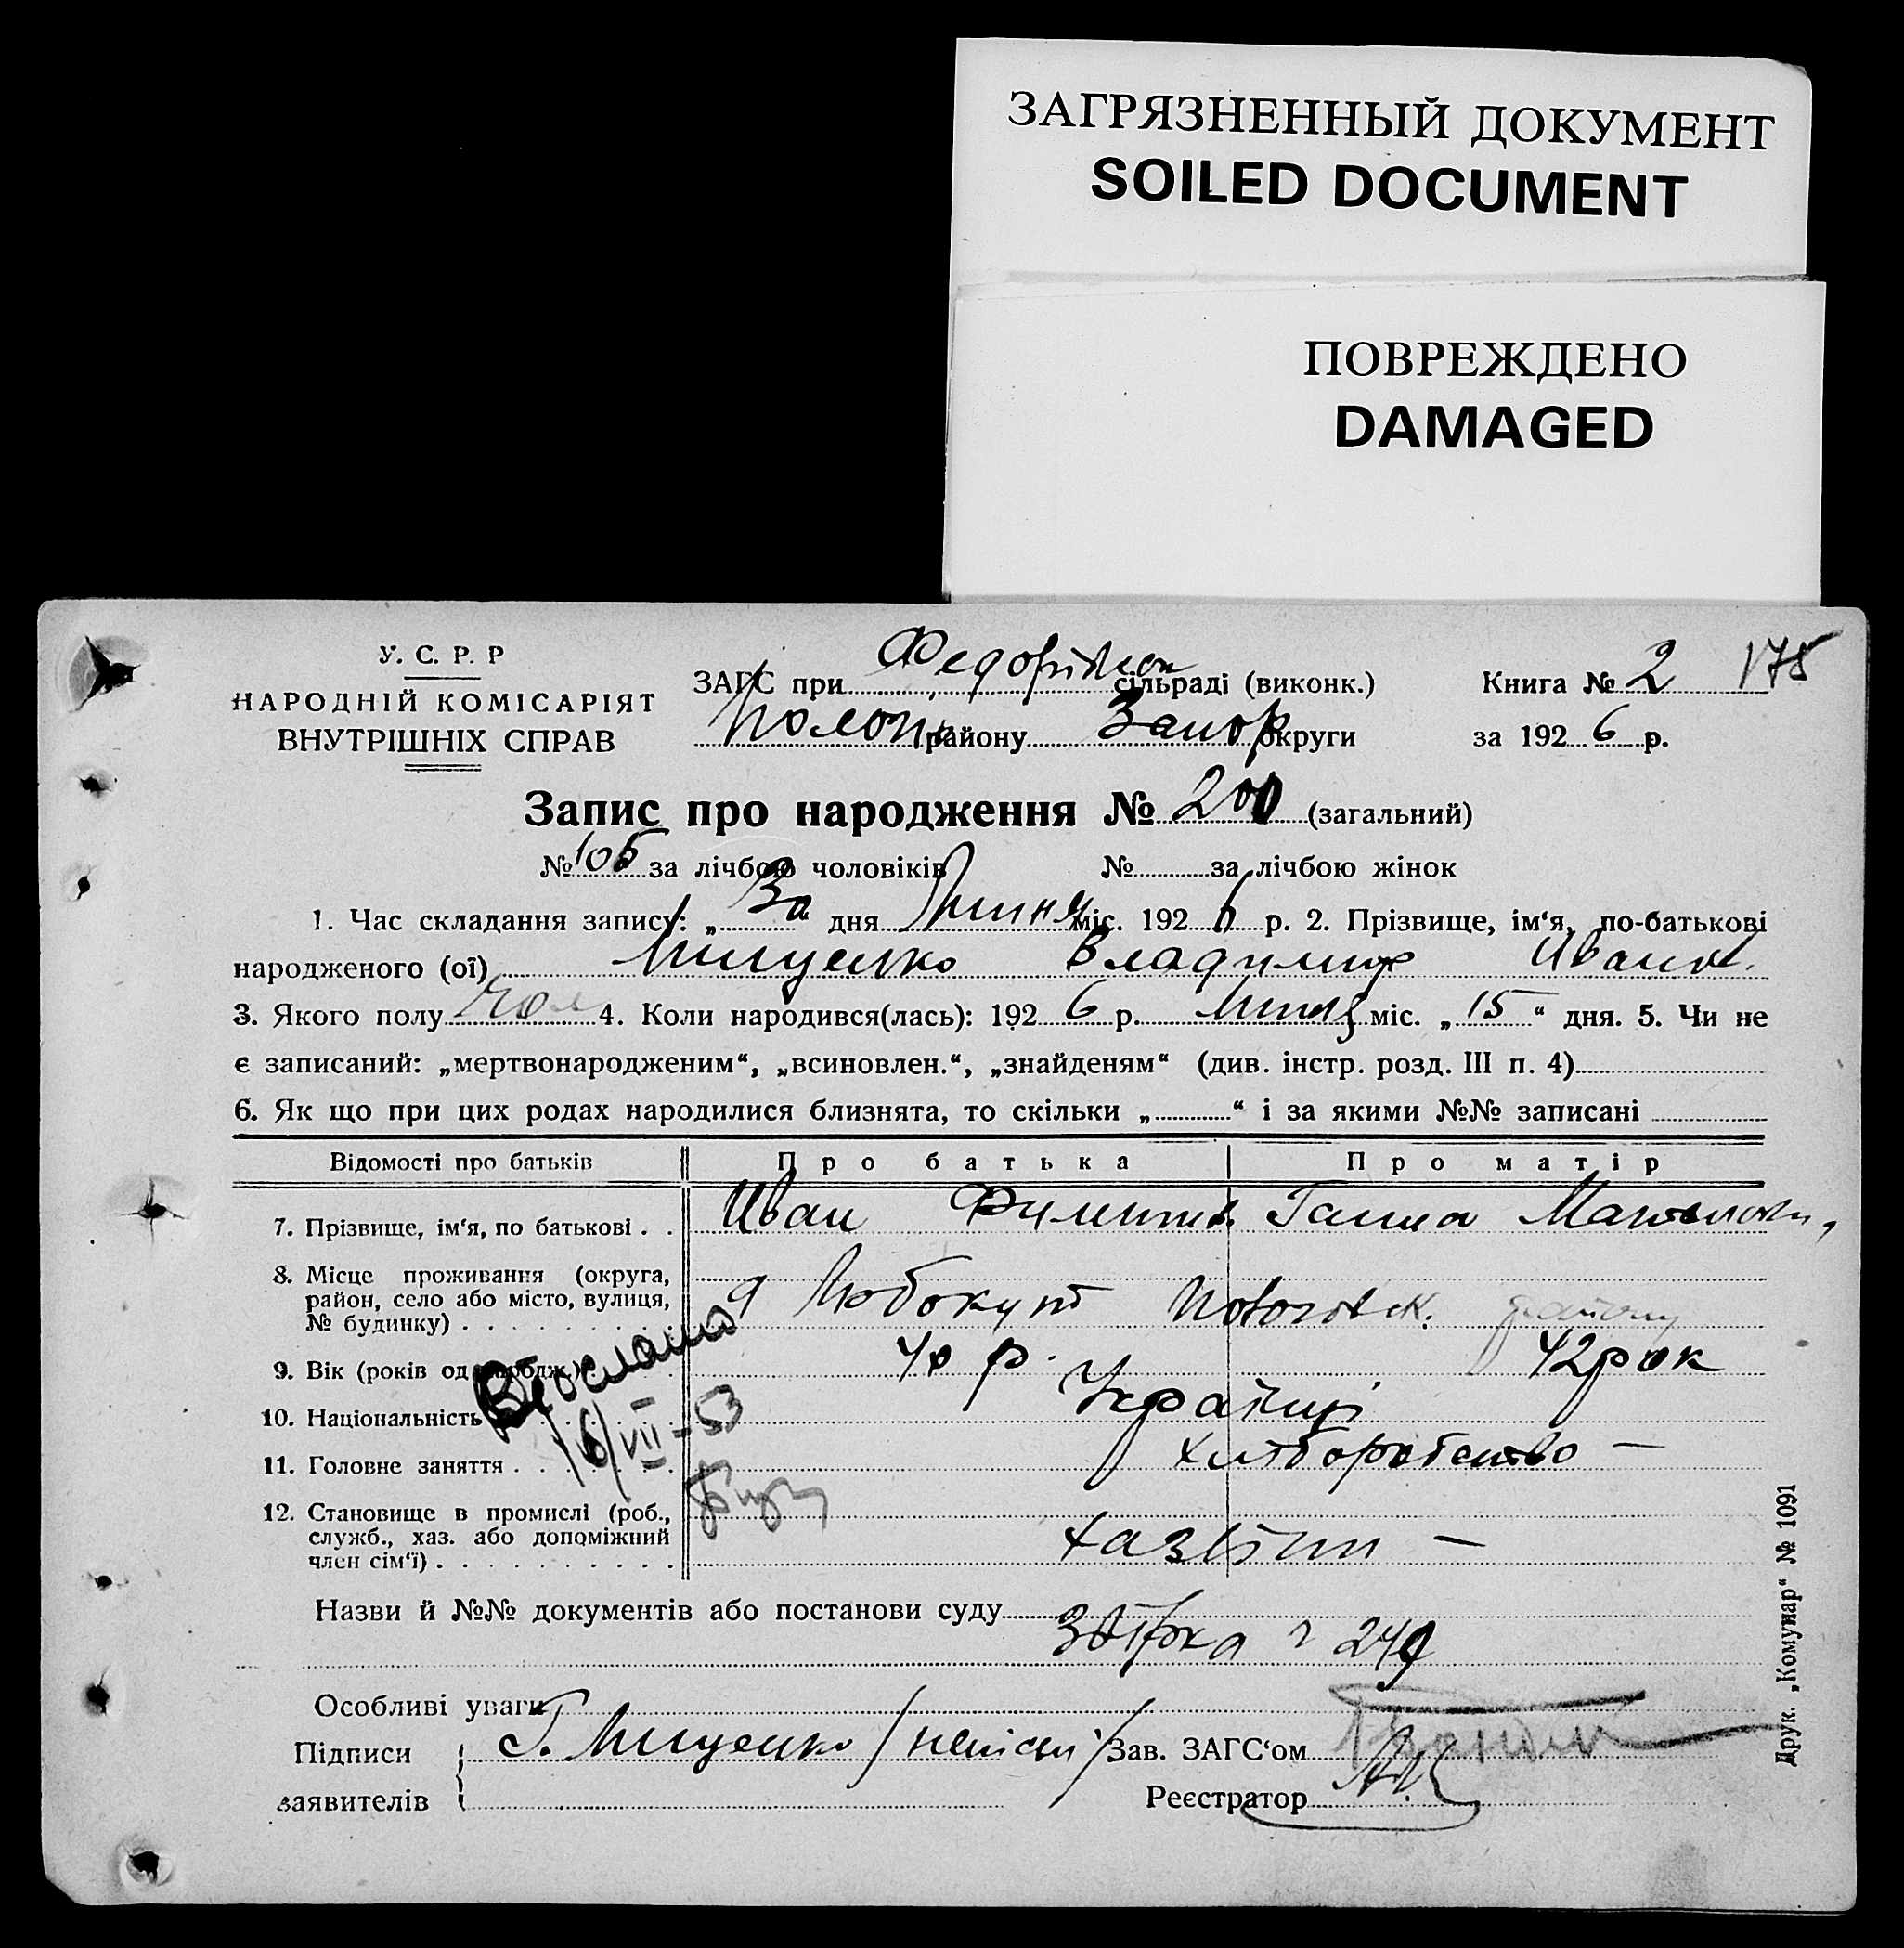 ЗАГРЯЗНЕННЫЙ ДОКУМЕНТ
SOILED DOCUMENT
ПОВРЕЖДЕНО
DAMAGED
У. С. Р. Р
НАРОДНІЙ КОМІСАРІЯТ
ВНУТРІШНІХ СПРАВ
ЗАГС при сільраді (виконк.)
району Запор округи
Книга № 2 178
за 1926 р.
Запис про народження № 200 (загальний)
№ 105 за лічбою чоловіків № за лічбою жінок
1. Час складання запису: „30“ дня Липня міс. 1926 р. 2. Прізвище, ім‘я, по-батькові
народженого (ої) Мищенко Владимир Иванов.
3. Якого полу чол 4. Коли народився(лась): 1926 р. Липня міс. „15“ дня. 5. Чи не
є записаний: „мертвонародженим“, „всиновлен.“, „знайденям“ (див. інстр. розд. III п. 4)
6. Як що при цих родах народилися близнята, то скільки „ “ і за якими №№ записані
Відомості про батьків Про батька Про матір
7. Прізвище, ім‘я, по батькові . . Иван Ганна
8. Місце проживання (округа,
район, село або місто, вулиця,
№ будинку) . . . . . . . . . . району
9. Вік (років од народж.) 40 р. 42 рок
10. Національність Українці
11. Головне заняття . . . . . . . хліборобство —
12. Становище в промислі (роб.,
служб., хаз. або допоміжний
член сім‘ї) . . . . . . . . . . хазяїни —
16/VII-53
Назви й №№ документів або постанови суду
249
Особливі уваги
Підписи Г. Мищенко Зав. ЗАГС‘ом
заявителів Реєстратор
Друк. „Комунар“ № 1091